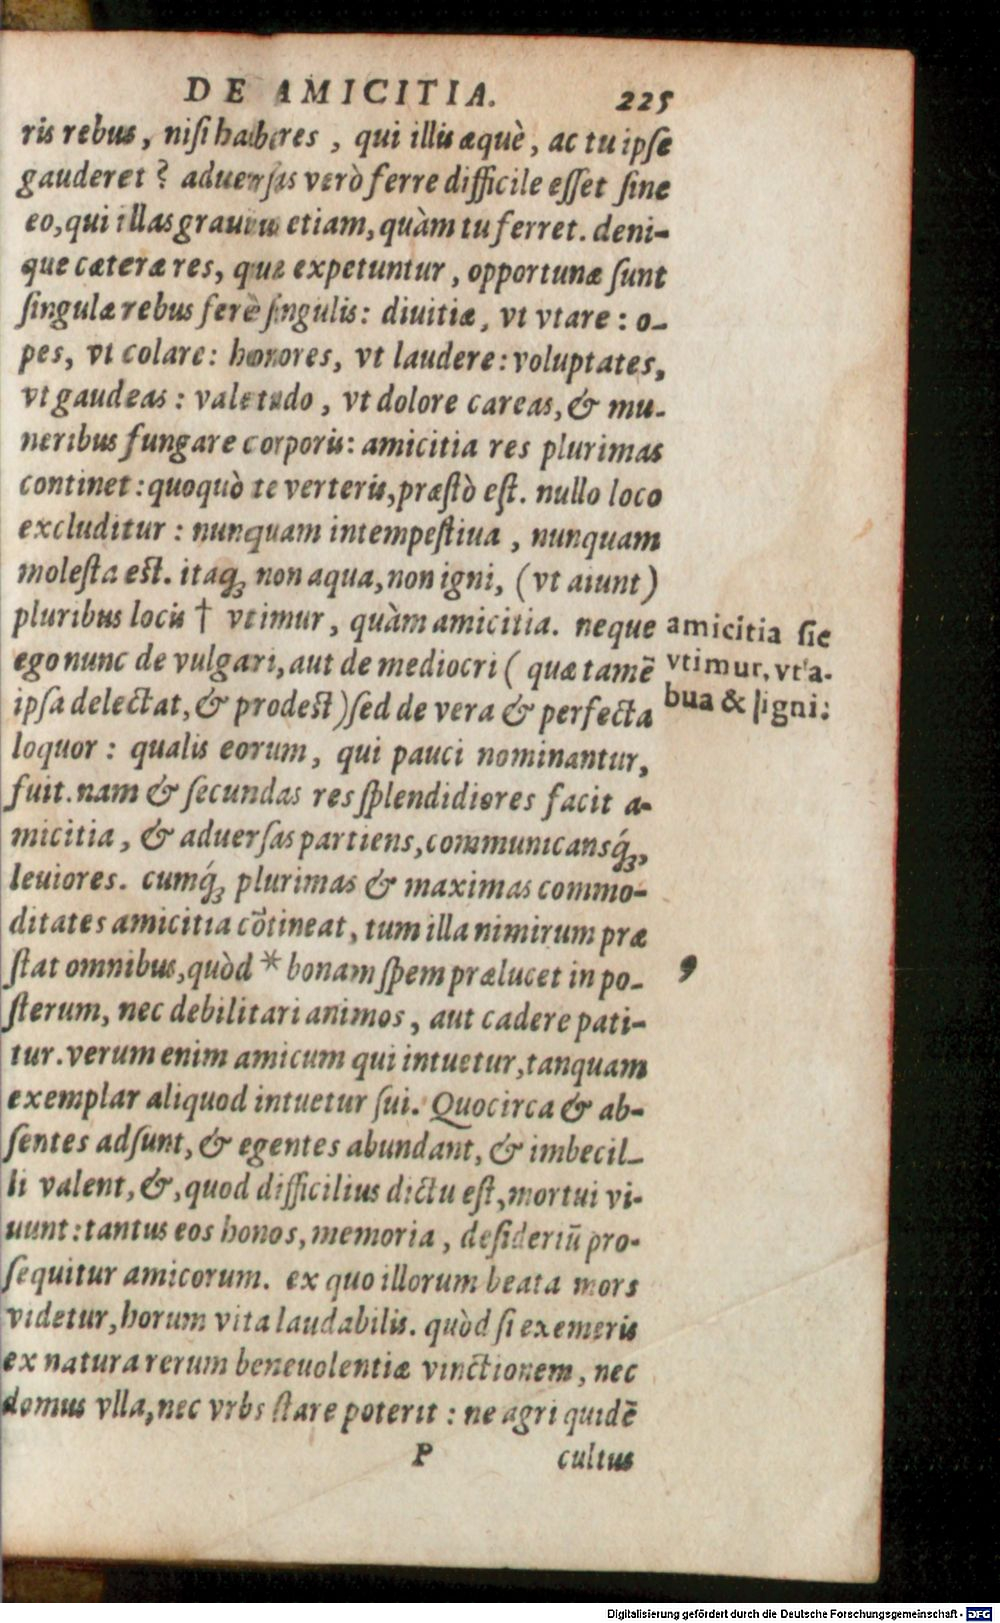 DE AMICITIA. 225
ris rebus, nisi haberes, qui illis æquè, ac tu ipse
gauderet? aduersas verò ferre difficile esset sine
eo, qui illas grauius etiam, quàm tu ferret. deni-
que cæteræ res, quæ expetuntur, opportunæ sunt
singulæ rebus ferè singulis: diuitiæ, vt vtare: o-
pes, vt colare: honores, vt laudere: voluptates,
vt gaudeas: valetudo, vt dolore careas, & mu-
neribus fungare corporis: amicitia res plurimas
continet: quoquò te verteris, præstò est. nullo loco
excluditur: nunquam intempestiua, nunquam
molesta est. itaq; non aqua, non igni, (vt aiunt)
pluribus locis † vtimur, quàm amicitia. neque
ego nunc de vulgari, aut de mediocri (quæ tamẽ
ipsa delectat, & prodest) sed de vera & perfecta
loquor: qualis eorum, qui pauci nominantur,
fuit. nam & secundas res splendidiores facit a-
micitia, & aduersas partiens, communicansq́;,
leuiores. cumq́; plurimas & maximas commo-
ditates amicitia cõtineat, tum illa nimirum præ
stat omnibus, quòd * bonam spem prælucet in po-
sterum, nec debilitari animos, aut cadere pati-
tur. verum enim amicum qui intuetur, tanquam
exemplar aliquod intuetur sui. Quocirca & ab-
sentes adsunt, & egentes abundant, & imbecil-
li valent, &, quod difficilius dictu est, mortui vi-
uunt: tantus eos honos, memoria, desideriũ pro-
sequitur amicorum. ex quo illorum beata mors
videtur, horum vita laudabilis. quòd si exemeris
ex natura rerum beneuolentiæ vinctionem, nec
domus vlla, nec vrbs stare poterit: ne agri quidẽ
P cultus
amicitia sic
vtimur, vt a-
bua & signi: